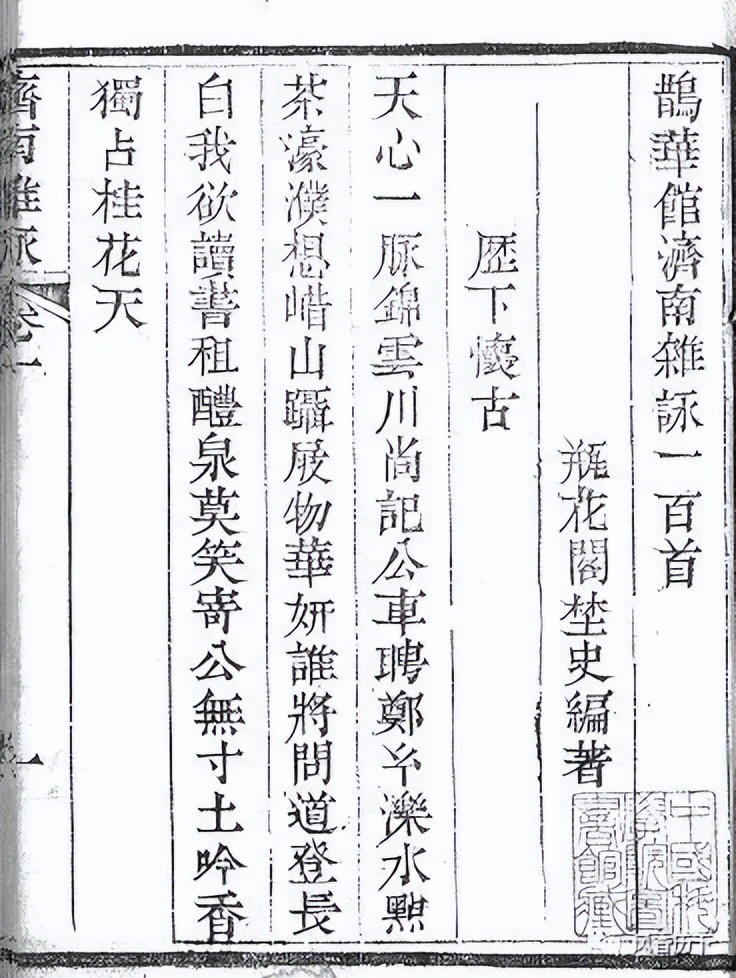 鵲華館濟南雜詠一百首
瓶花閣埜史編著
歴下懷古
天心一脈錦雲川尚記公車聘鄭濼水點
茶濠濮想山躡屐物華妍誰將問道登長
白我欲讀書租醴泉莫笑寄公無寸土吟香
獨占桂花天
濟南雜詠 卷一
一
中國科
學院圖
書館藏